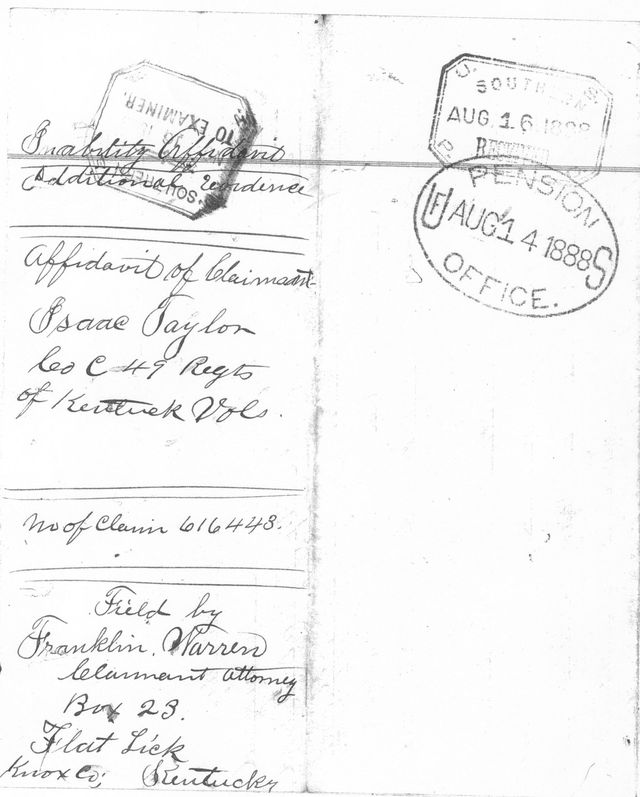 Inability Affidavit
Additional Evidence
Affidavit of Claimant
Isaac Taylor
Co C 49 Regts
of Kentuck Vols.
No of Claim 616443.
Field by
Franklin. Warren
Claimant attorney
Box 23.
Flat Lick
Knox Co; Kentucky
TO EXAMINER.
SOUTHERN
U.S.
SOUTHERN
AUG. 16 1888
RECEIVED
PENSION
U.S. AUG 14 1888
OFFICE.